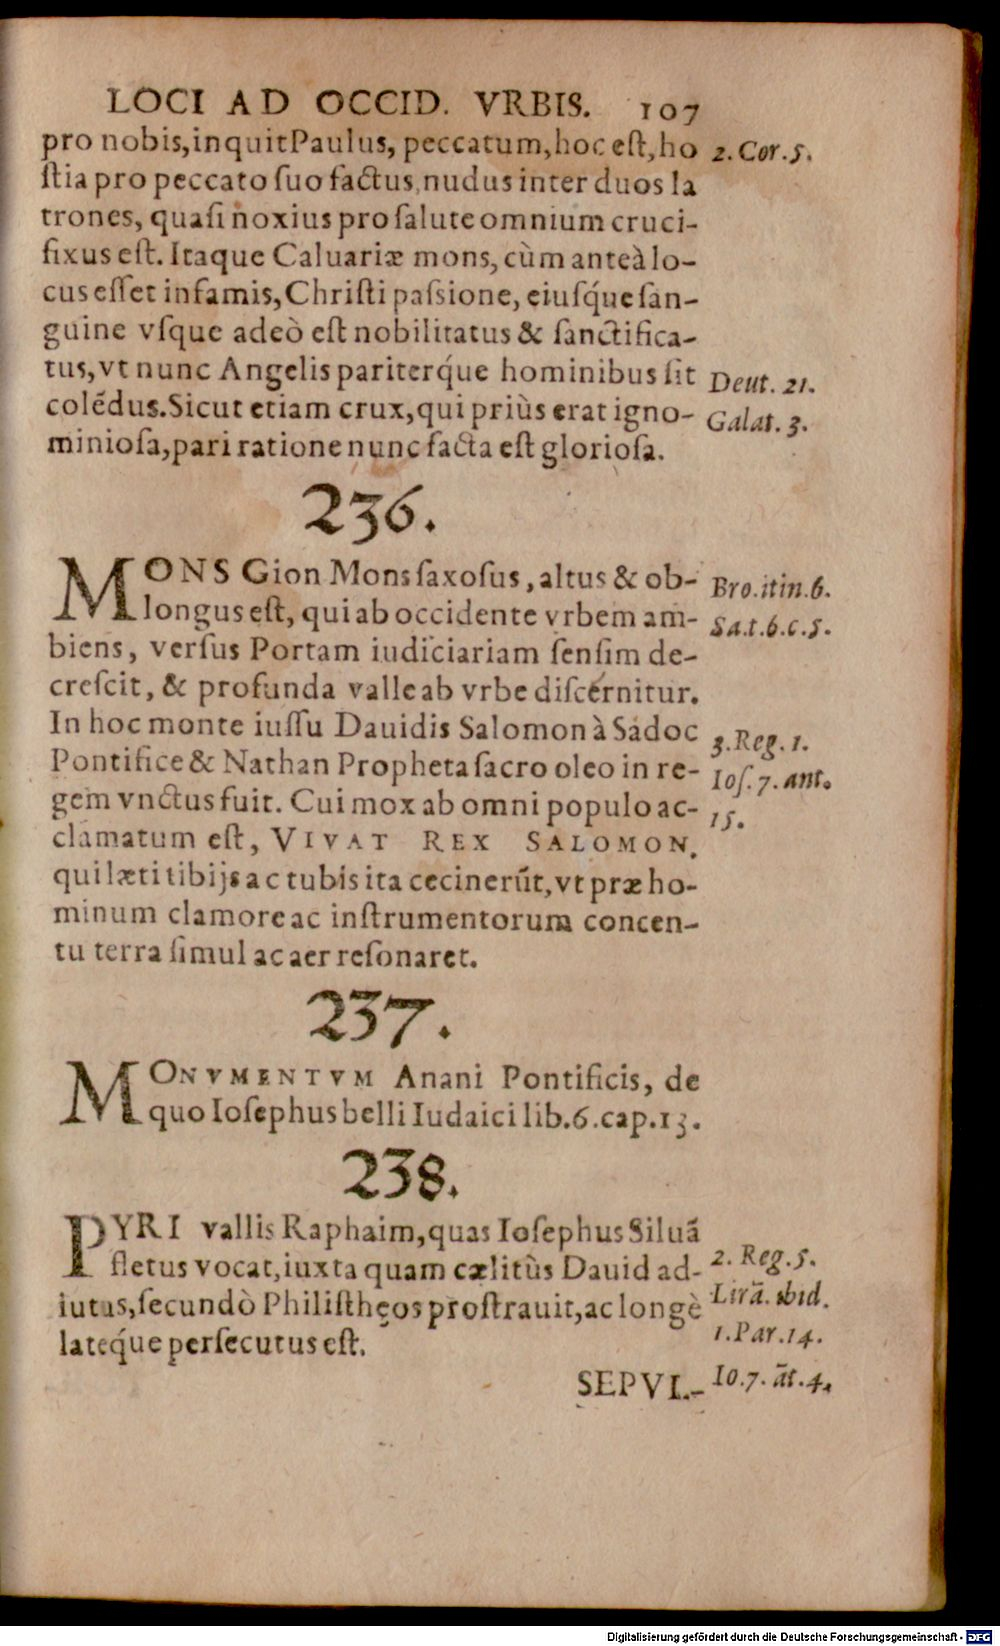 LOCI AD OCCID. VRBIS. 107
pro nobis, inquit Paulus, peccatum, hoc eſt, ho 2. Cor. 5.
ſtia pro peccato ſuo factus, nudus inter duos la
trones, quaſi noxius pro ſalute omnium cruci-
fixus eſt. Itaque Caluariæ mons, cùm anteà lo-
cus eſſet infamis, Chriſti paſsione, eiuſq́ue ſan-
guine vſque adeò eſt nobilitatus & ſanctifica-
tus, vt nunc Angelis pariterq́ue hominibus ſit Deut. 21.
colẽdus. Sicut etiam crux, qui priùs erat igno- Galat. 3.
minioſa, pari ratione nunc facta eſt glorioſa.
236.
MONS Gion Mons ſaxoſus, altus & ob- Bro. itin. 6.
longus eſt, qui ab occidente vrbem am- Sa. t. 6. c. 5.
biens, verſus Portam iudiciariam ſenſim de-
creſcit, & profunda valle ab vrbe diſcernitur.
In hoc monte iuſſu Dauidis Salomon à Sadoc 3. Reg. 1.
Pontifice & Nathan Propheta ſacro oleo in re- Ioſ. 7. ant.
gem vnctus fuit. Cui mox ab omni populo ac- 15.
clamatum eſt, VIVAT REX SALOMON.
qui læti tibijs ac tubis ita cecinerũt, vt præ ho-
minum clamore ac inſtrumentorum concen-
tu terra ſimul ac aer reſonaret.
237.
MONVMENTVM Anani Pontificis, de
quo Ioſephus belli Iudaici lib. 6. cap. 13.
238.
PYRI vallis Raphaim, quas Ioſephus Siluã
fletus vocat, iuxta quam cælitùs Dauid ad- 2. Reg. 5.
iutus, ſecundò Philiſthęos proſtrauit, ac longè Lirã. ibid.
lateq́ue perſecutus eſt. 1. Par. 14.
SEPVL- Io. 7. ãt. 4.
Digitalisierung gefördert durch die Deutsche Forschungsgemeinschaft - DFG